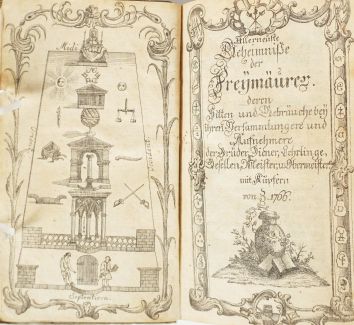 Medi
Septentrion.
Allerneüste
Geheimniße
der
Freÿmäurer.
deren
Sitten und Gebräuche beÿ
ihren Versammlungen und
Aufnehmere
der Brüder, Diener, Lehrlinge,
Gesellen, Meister, u. Obermeister
mit Kupfern
von J. 1766.